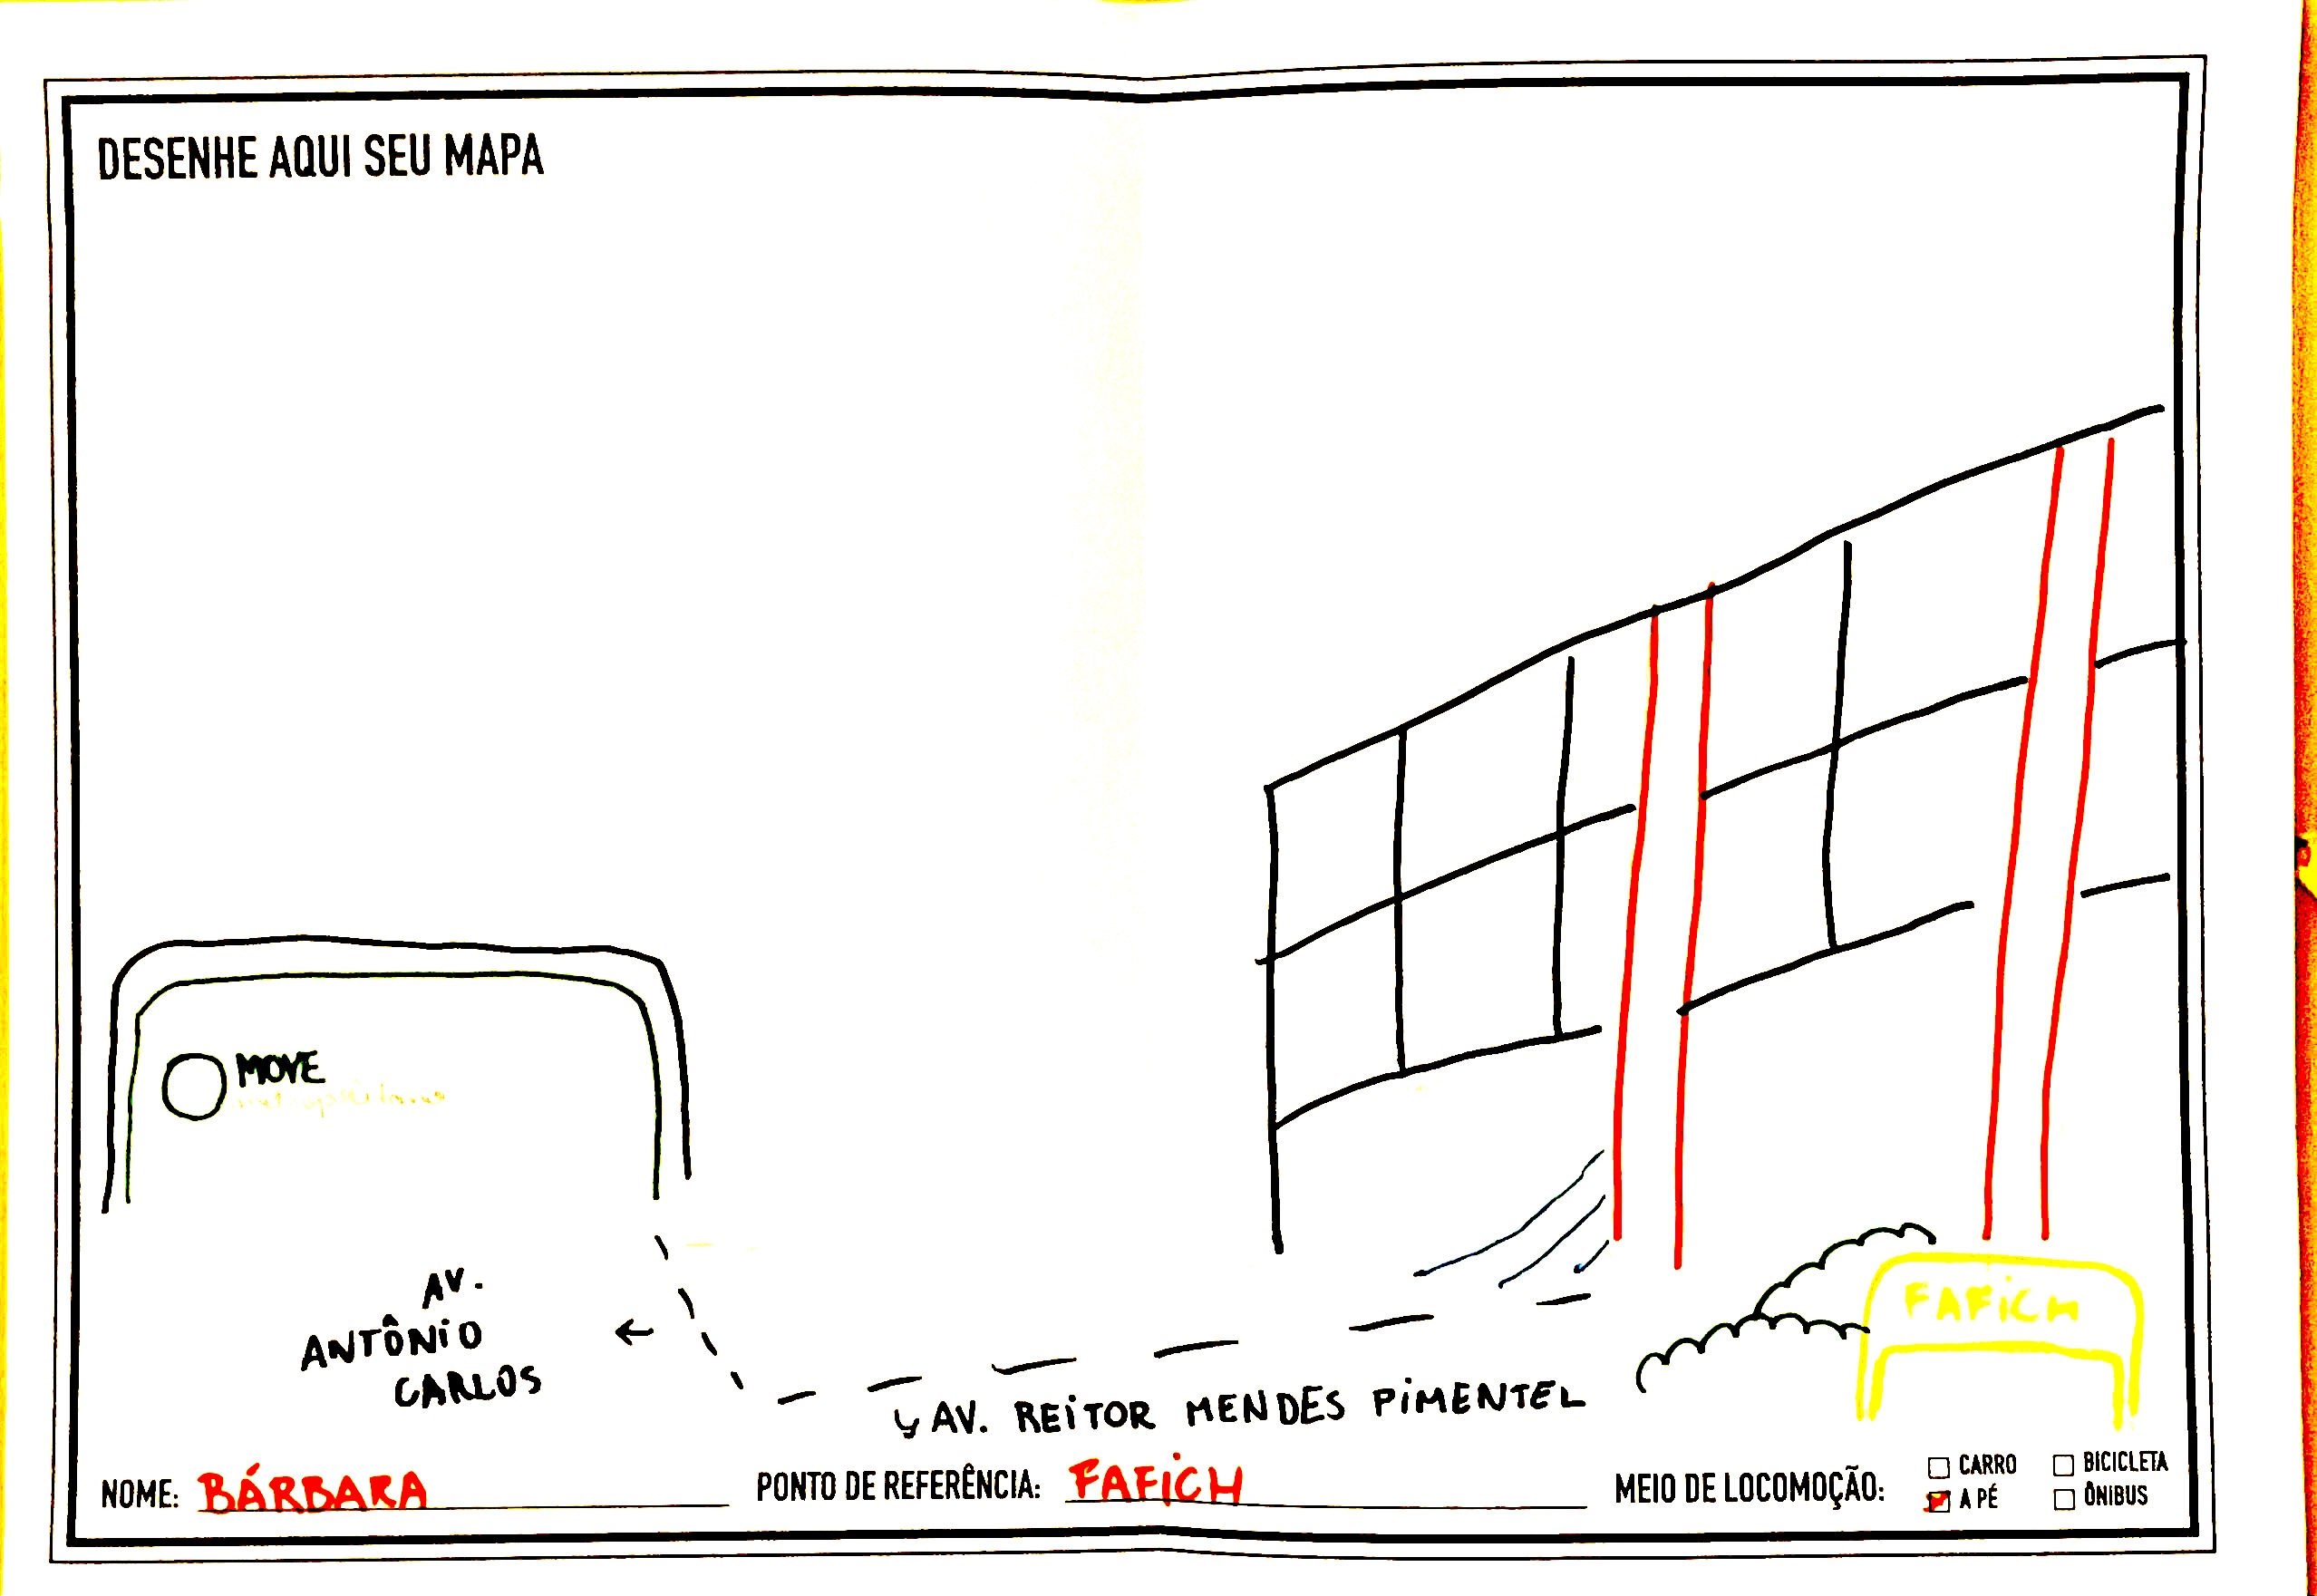 DESENHE AQUI SEU MAPA
MOVE
metropolitano
AV.
ANTÔNIO
CARLOS
AV. REITOR MENDES PIMENTEL
FAFICH
NOME: BÁRBARA
PONTO DE REFERÊNCIA: FAFICH
MEIO DE LOCOMOÇÃO:
CARRO
BICICLETA
A PÉ
ÔNIBUS